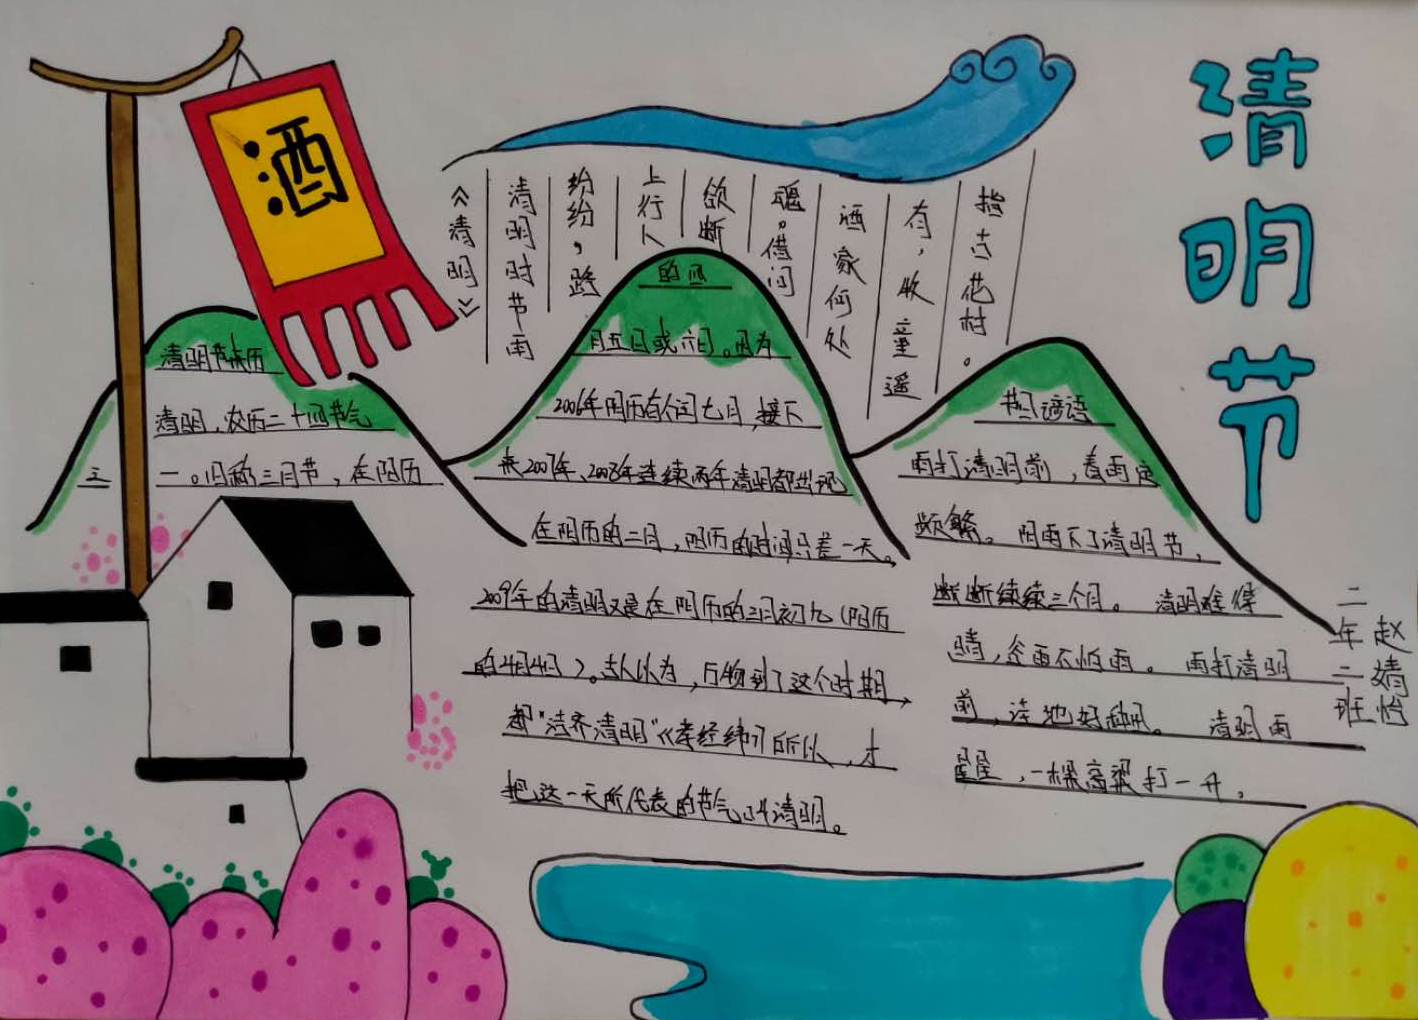 清明节
酒
《清明》
清明时节雨
纷纷，路
上行人
欲断
魂。借问
酒家何处
有，牧童遥
指杏花村。
清明节来历
清明，农历二十四节气
之一。旧称三月节，在阳历
的四
月五日或六日。因为
2006年阴历有个闰七月，接下
来2007年、2008年连续两年清明都出现
在阴历的二月，阳历的时间只差一天。
2009年的清明又是在阴历的三月初九（阳历
的4月4日）。古人以为，万物到了这个时期
都"洁齐清明"《孝经纬》所以，才
把这一天所代表的节气叫清明。
谚语
雨打清明前，春雨定
频繁。 阴雨下了清明节，
断断续续三个月。 清明难得
晴，谷雨不怕雨。 雨打清明
前，洼地好种田。 清明雨
星星，一棵高粱打一升。
二年二班
赵婧怡